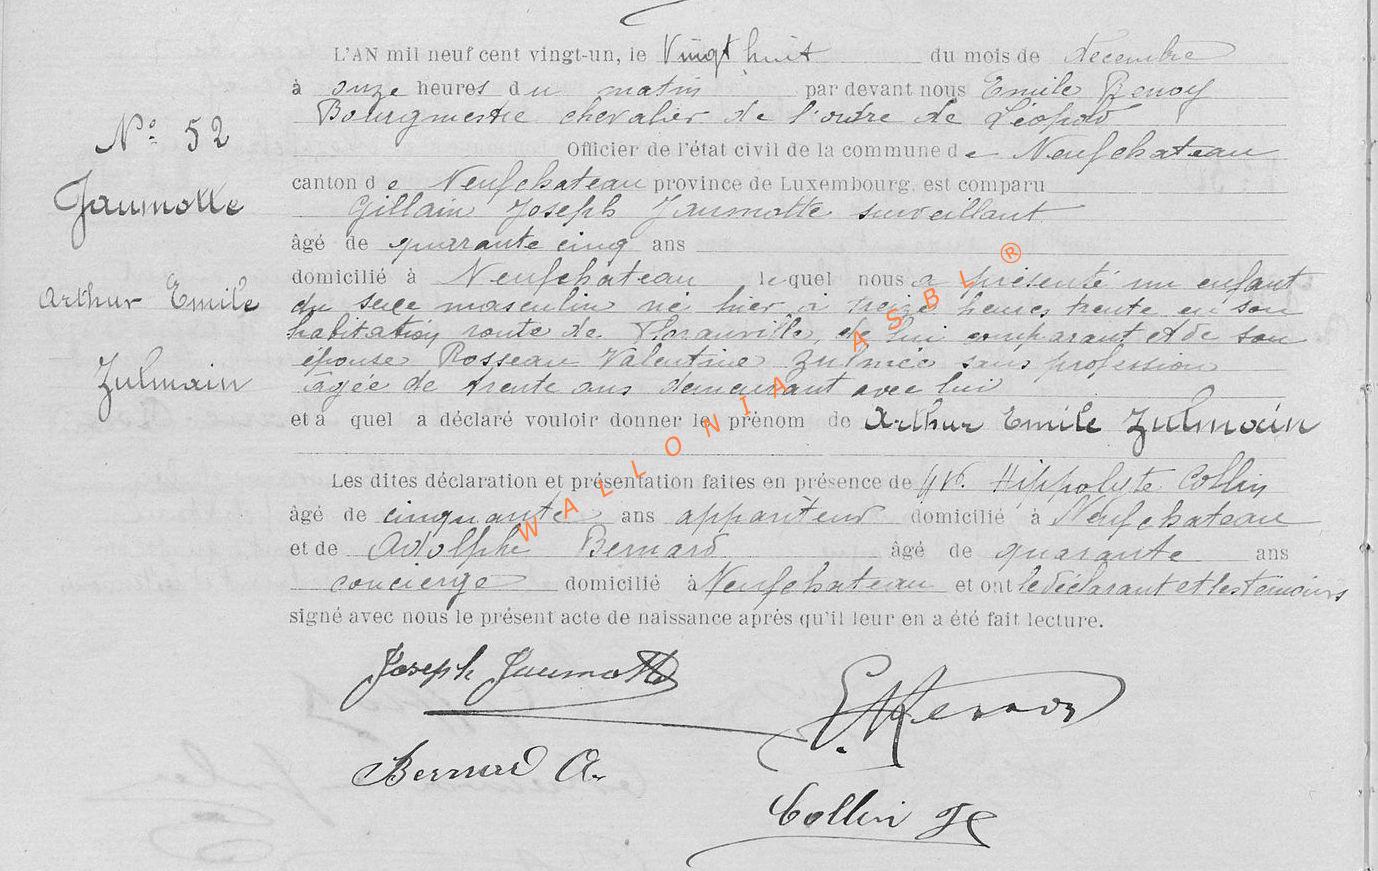 L'AN mil neuf cent vingt-un, le Vingt huit du mois de décembre
à onze heures du matin par devant nous Emile Renoy
Bourgmestre chevalier de l'ordre de Léopold
Officier de l'état civil de la commune de Neufchateau
canton de Neufchateau province de Luxembourg, est comparu
Gillain Joseph Jaumotte surveillant
âgé de quarante cinq ans
domicilié à Neufchateau lequel nous a présenté un enfant
du sexe masculin né hier à treize heures trente en son
habitation route de de lui comparant et de son
épouse Rosseau Valentine Zulmée sans profession
agée de trente ans demeurant avec lui
et a quel a déclaré vouloir donner le prénom de Arthur Emile Zulmain
Les dites déclaration et présentation faites en présence de Hippolyte Collin
âgé de cinquante ans appariteur domicilié à Neufchateau
et de Adolphe Bernard âgé de quarante ans
concierge domicilié à Neufchateau et ont le déclarant et les témoins
signé avec nous le présent acte de naissance après qu'il leur en a été fait lecture.
N° 52
Jaumotte
Arthur Emile
Zulmain
Joseph Jaumotte
Bernard A.
Collin
WALLONIA ASBL ®